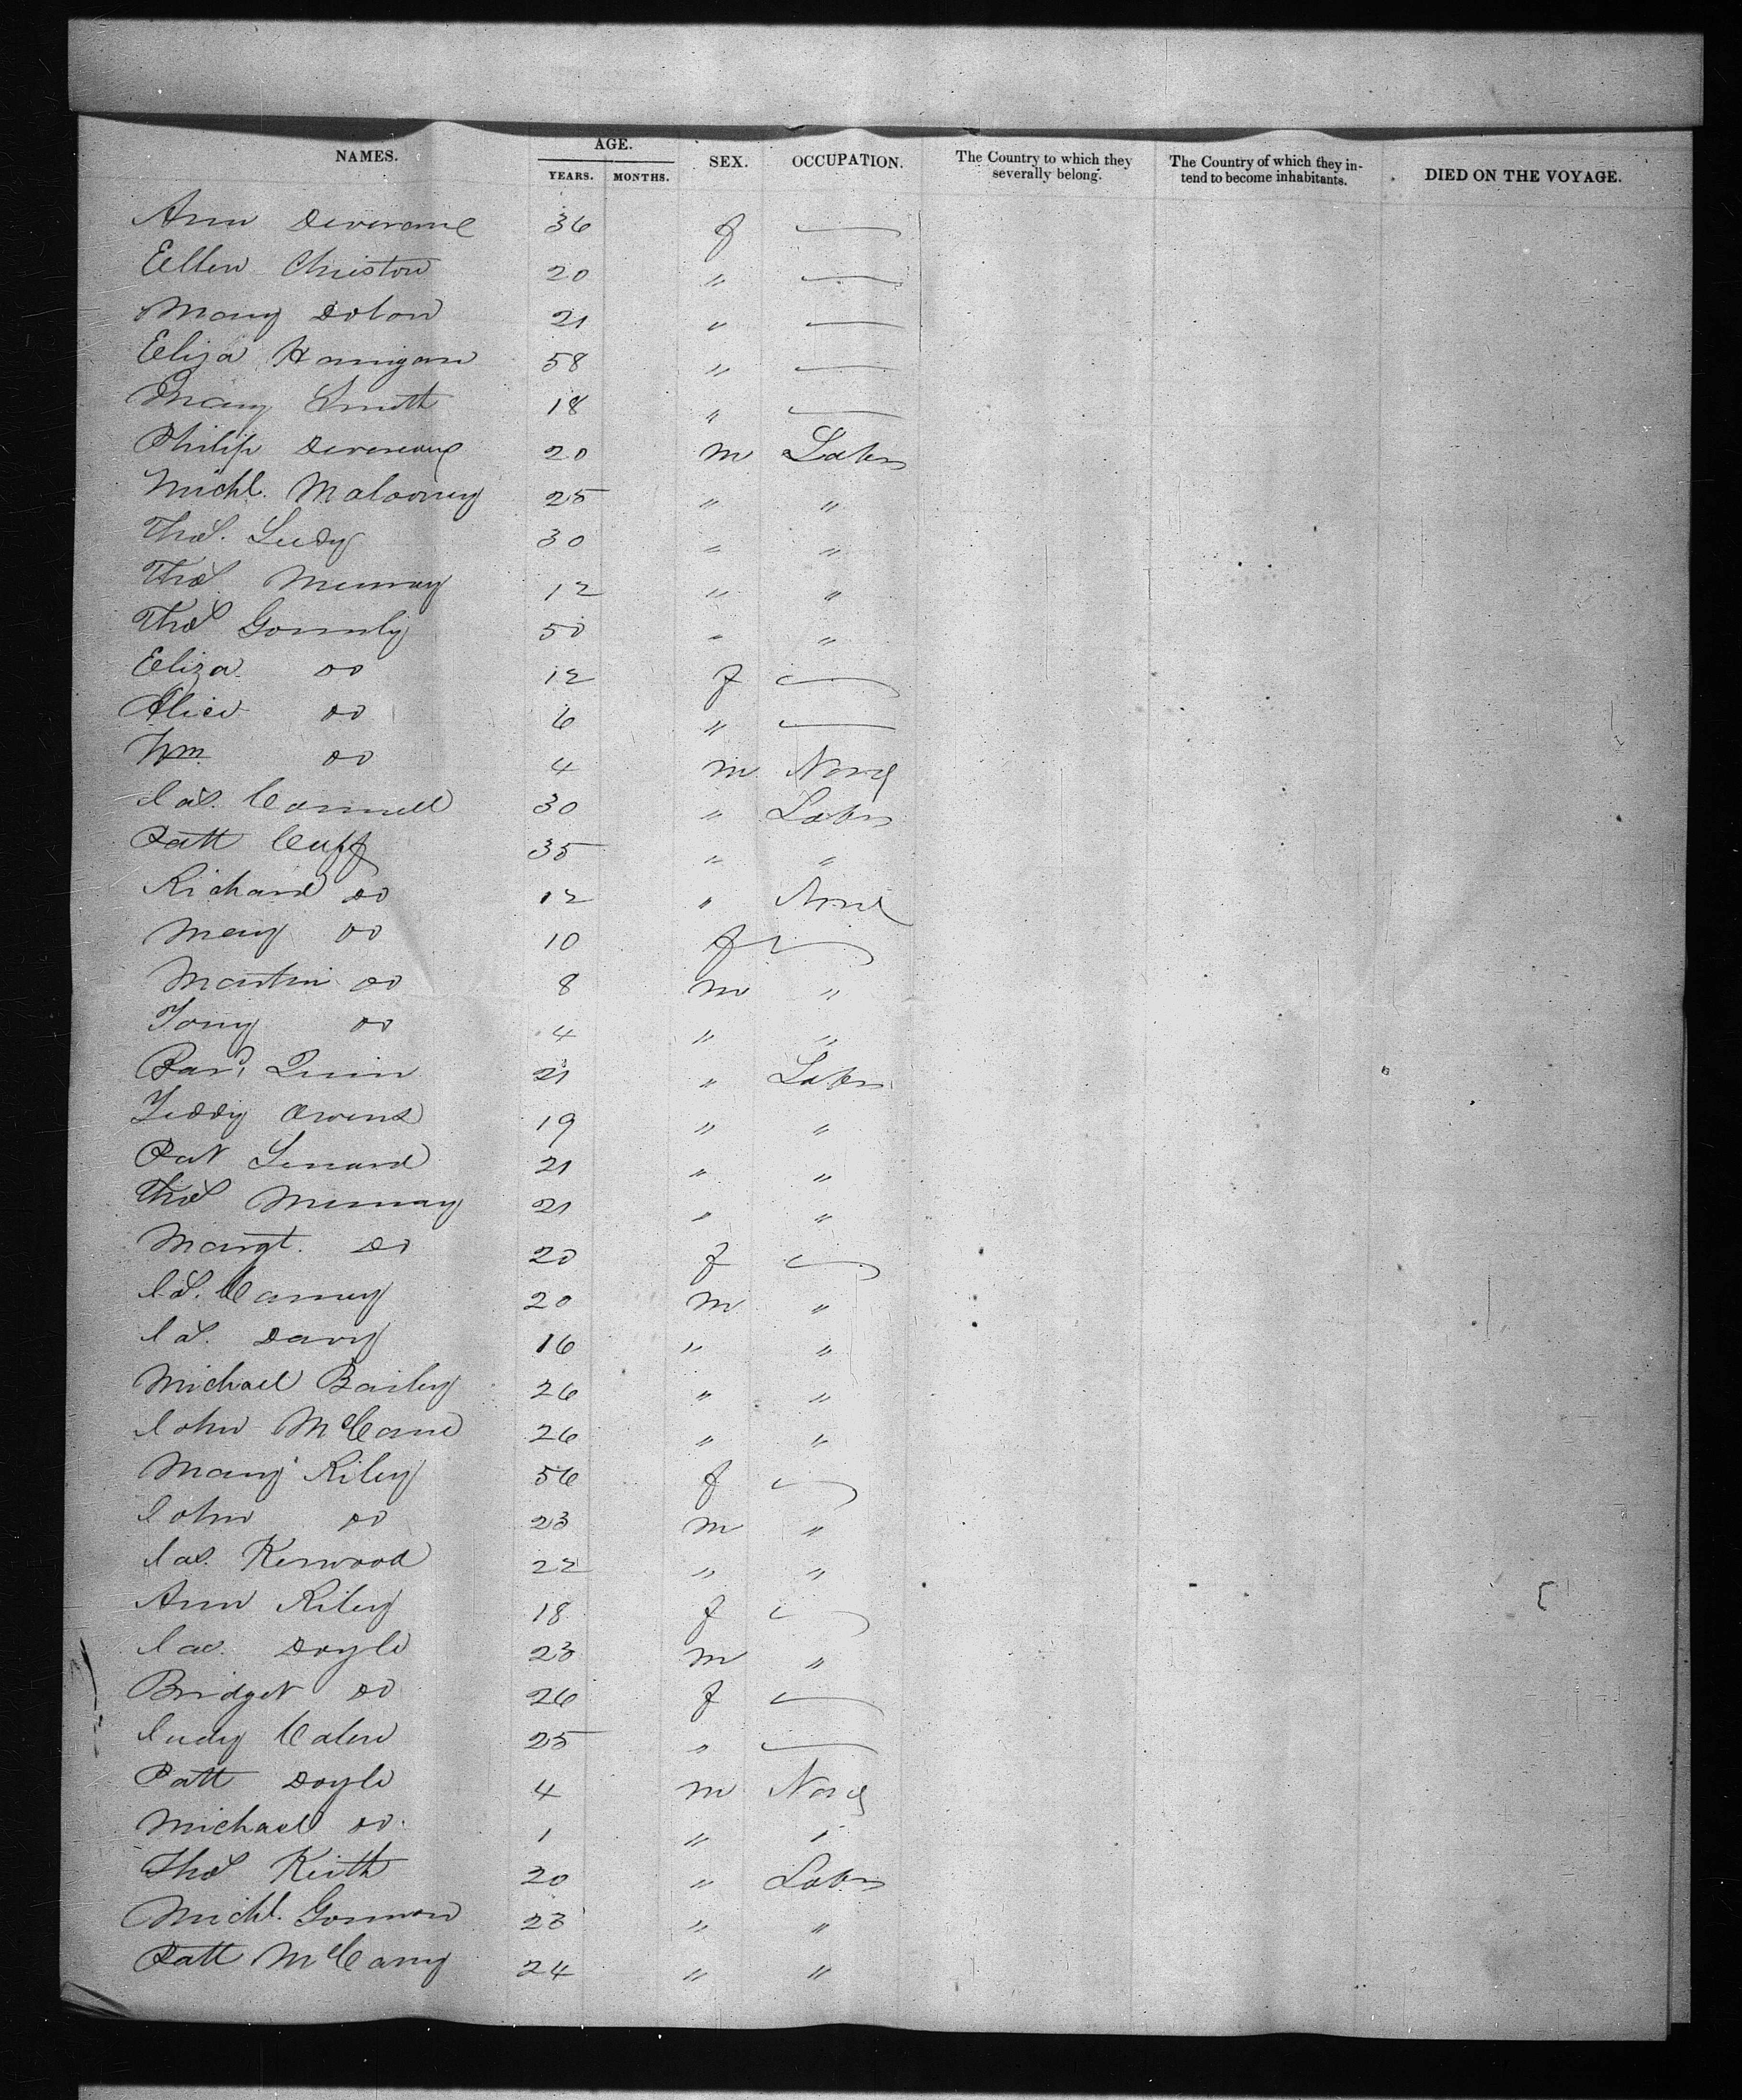 NAMES. AGE. SEX. OCCUPATION. The Country to which they severally belong. The Country of which they intend to become inhabitants. DIED ON THE VOYAGE.
YEARS. MONTHS.
Ann 36 f —
Ellen 20 " —
Mary Dolan 21 " —
Eliza Hanigan 58 " —
Mary Smith 18 " —
Philip Devereaux 20 m Labr
Michl. Malooney 25 " "
Thos. Leedy 30 " "
Thos Murray 12 " "
Thos Gormly 50 " "
Eliza Do 12 f —
Alice Do 6 " —
Wm Do 4 m None
Jas. Connell 30 " Labr
Patt Cuff 35 " "
Richard Do 12 " None
Mary Do 10 f —
Martin Do 8 m "
Tony Do 4 " "
Quinn 21 " Labr
Teddy Owens 19 " "
Pat Lenard 21 " "
Thos Murray 21 " "
Margt. Do 20 f —
Js. Carney 20 m "
Jas. Davy 16 " "
Michael Bailey 26 " "
John McCann 26 " "
Mary Riley 56 f —
John Do 23 m "
Jas. Kerwood 22 " "
Ann Riley 18 f —
Jas. Doyle 23 m "
Bridget Do 26 f —
Judy 25 " —
Patt Doyle 4 m None
Michael Do. 1 " "
Thos Keith 20 " Labr
Michl. Gorman 23 " "
Patt 24 " "